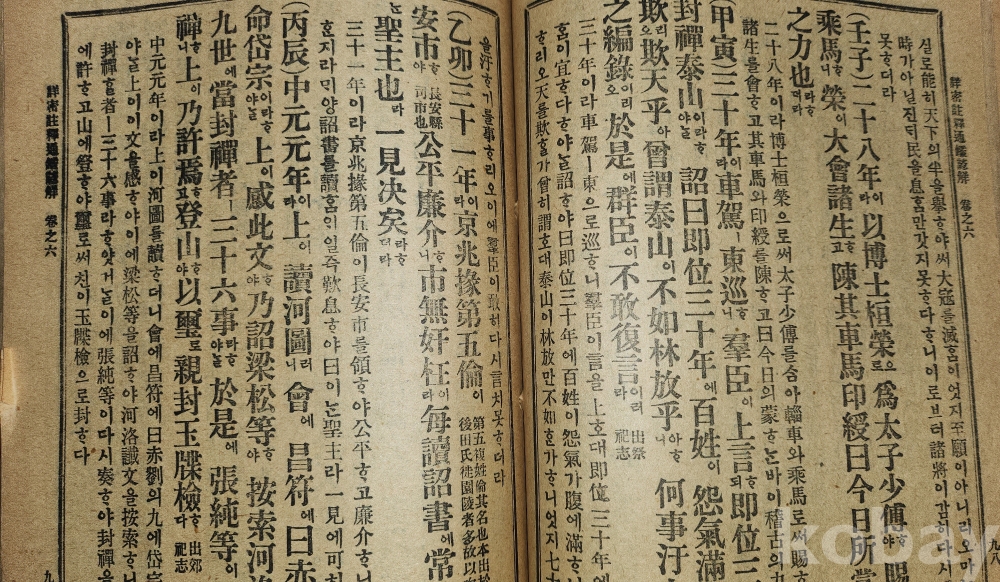 詳密註釋通鑑諺解 卷之六
실로能히天下의半을擧ᄒᆞ야써大寇를滅홈이엇지至願이아니리오마
時가아닐진ᄃᆡ民을息홈만갓지못ᄒᆞ다ᄒᆞ니이로브터諸將이감히다시
못ᄒᆞ더라
(壬子)二十八年이라以博士桓榮으로爲太子少傅ᄒᆞ야賜
乘馬ᄒᆞ니榮이大會諸生ᄒᆞ고陳其車馬印綬曰今日所蒙
之力也라ᄒᆞ더라
二十八年이라博士桓榮으로써太子少傅를合ᄒᆞ야輜車와乘馬로써賜ᄒᆞ
諸生를會ᄒᆞ고其車馬와印綬를陳ᄒᆞ고曰今日의蒙ᄒᆞᆫ바이稽古의
(甲寅)三十年이라車駕ㅣ東巡ᄒᆞ니羣臣이上言ᄒᆞ되即位三
封禪泰山이라ᄒᆞ야ᄂᆞᆯ詔曰即位三十年에百姓이怨氣滿
欺리오欺天乎아曾謂泰山이不如林放乎아ᄒᆞ니何事汙
之編錄이리오於是에群臣이不敢復言이러라 出祭祀志
三十年이라車駕ㅣ東으로巡ᄒᆞ니羣臣이言을上호대即位三十年에
홈이宜ᄒᆞ다ᄒᆞ야ᄂᆞᆯ詔ᄒᆞ야曰即位三十年에百姓이怨氣가腹에滿ᄒᆞ니
ᄒᆞ리오天를欺ᄒᆞᆯ가曾히謂호대泰山이林放만不如ᄒᆞᆫ가ᄒᆞ니엇지七十
을汙ᄒᆞ기를事ᄒᆞ리오이에羣臣이敢히다시言치못ᄒᆞ더라
(乙卯)三十一年이라京兆掾第五倫이 第五複姓倫其名也本出於 後田氏徙園陵者多故以
安市ᄒᆞ야 長安縣司市也 公平廉介ᄒᆞ니市無奸枉이라每讀詔書에常
聖主也라一見決矣라ᄒᆞ더라
三十一年이라京兆掾第五倫이長安市를領ᄒᆞ야公平ᄒᆞ고廉介ᄒᆞ니
ᄒᆞᆫ지라ᄆᆡ양詔書를讀홈ᄋᆡ일즉歎息ᄒᆞ야曰이ᄂᆞᆫ聖主라一見에可히
(丙辰)中元元年이라上이讀河圖ᄒᆞ더니會에昌符에曰赤
命岱宗이라ᄒᆞ야ᄂᆞᆯ上이感此文ᄒᆞ야乃詔梁松等ᄒᆞ야按索河
九世에當封禪者ㅣ三十六事라ᄒᆞ야ᄂᆞᆯ於是에張純等이
禪ᄒᆞ니上이乃許焉ᄒᆞ고登山ᄒᆞ야以璽로親封玉牒檢ᄒᆞ다 出郊祀志
中元元年이라上이河圖를讀ᄒᆞ더니會에昌符에曰赤劉의九에岱宗
야ᄂᆞᆯ上이이文을感ᄒᆞ야이에梁松等을詔ᄒᆞ야河洛識文을按索ᄒᆞ니
封禪ᄒᆞᆯ者ㅣ三十六事라ᄒᆞ얏거ᄂᆞᆯ이에張純等이다시奏ᄒᆞ야封禪을
에許ᄒᆞ고山에登ᄒᆞ야璽로써친이玉牒檢으로封ᄒᆞ다
詳密註釋通鑑諺解 卷之六
kobay